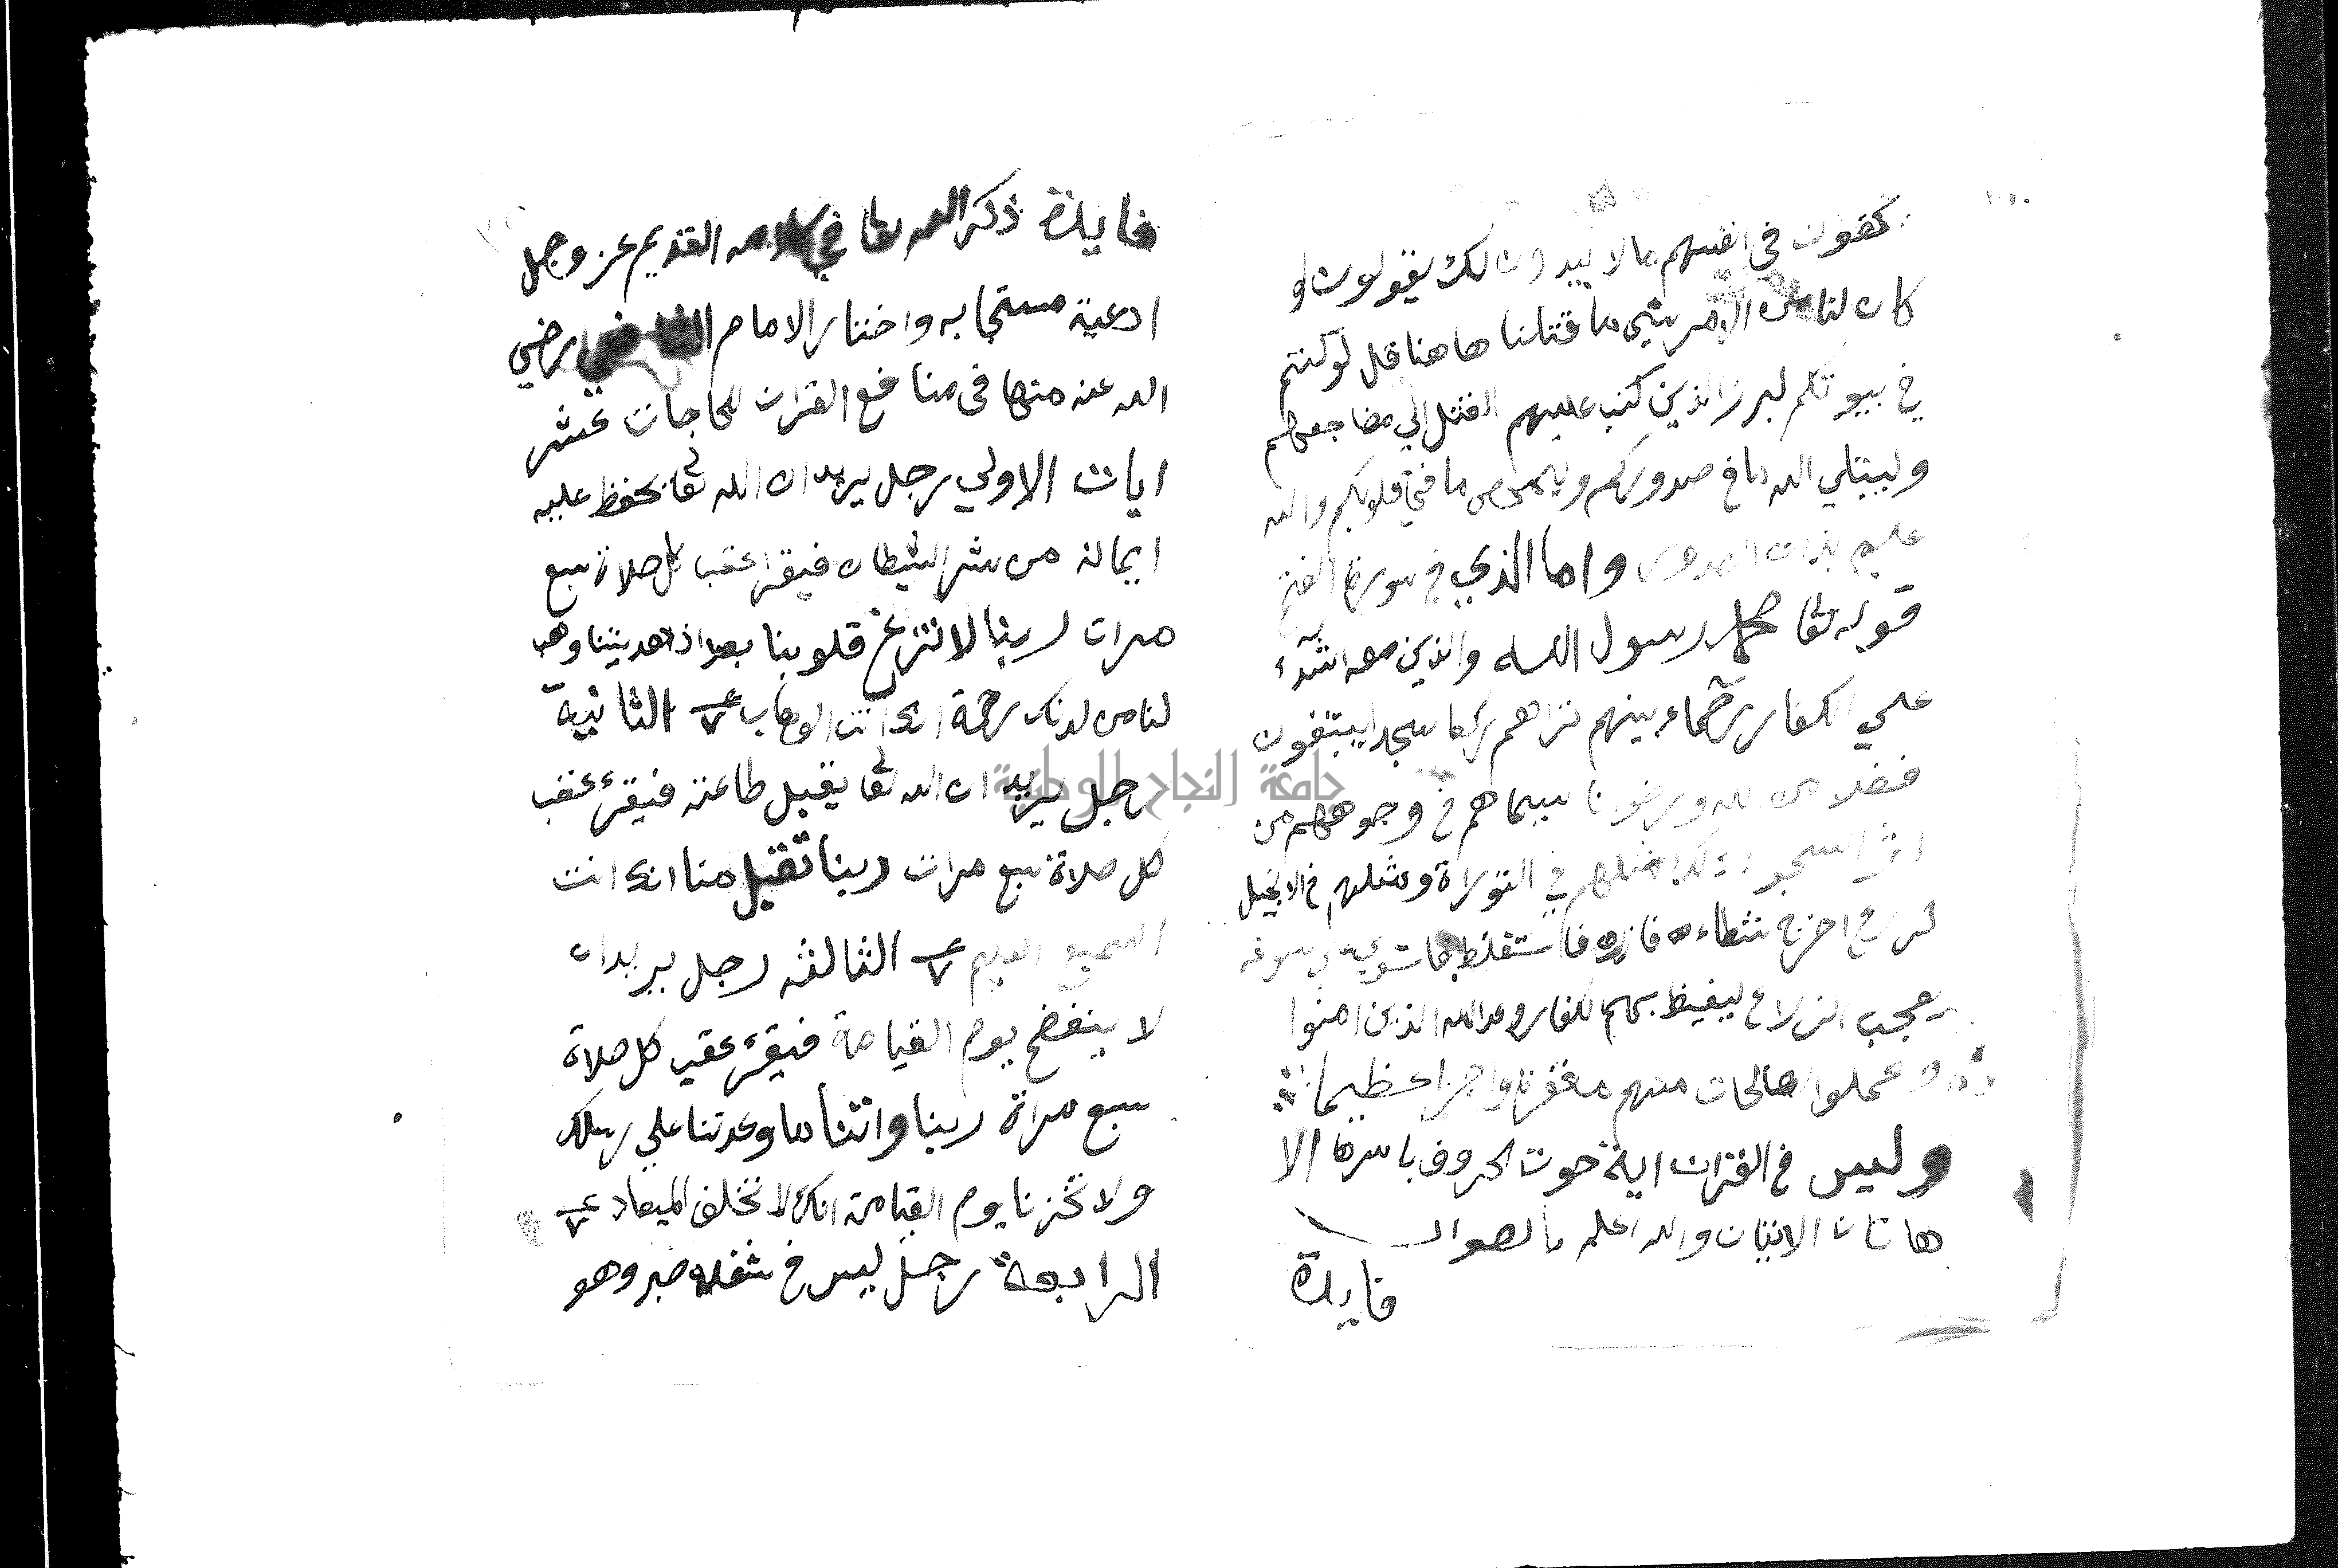 يخفون في انفسهم ما لا يبدون لك يقولون لو
كان لنا من الامر شي ما قتلنا هاهنا قل لو كنتم
في بيوتكم لبرز الذين كتب عليهم القتل الي مضاجعهم
وليبتلي الله ما في صدوركم وليمحص ما في قلوبكم والله
عليم بذات الصدور واما الذي في سورة الفتح
قوله تعا محمد رسول الله والذين معه اشدآء
علي الكفار رحماء بينهم تراهم ركعا سجدا يبتغون
فضلا من الله ورضوانا سيماهم في وجوههم من
اثر السجود ذلك مثلهم في التوراة ومثلهم في الانجيل
كزرع اخرج شطاءه فازره فاستغلظ فاستوي علي سوقه
يعجب الزراع ليغيظ بهم الكفار وعد الله الذين امنوا
وعملوا الصالحات منهم مغفرة واجرا عظيما
وليس في القران اية حوت الحروف باسرها الا
هاتان الايتان والله اعلم بالصواب
فايدة
فايدة ذكر الله تعا في كلامه القديم عز وجل
ادعية مستجابه واختار الامام الشافعي رضي
الله عنه منها في منافع القران للحاجات عشر
ايات الاولي رجل يريد ان الله تعا يحفظ عليه
ايمانه من شر الشيطان فيقرا عقب كل صلاة سبع
مرات ربنا لا تزغ قلوبنا بعد اذ هديتنا وهب
لنا من لدنك رحمة انك انت الوهاب ٧ الثانية
رجل يريد ان الله تعا يقبل طاعته فيقرء عقب
كل صلاة سبع مرات ربنا تقبل منا انك انت
السميع العليم ٧ الثالثه رجل يريد ان
لا ينفضح يوم القيامة فيقرء عقيب كل صلاة
سبع مراة ربنا واتنا ما وعدتنا علي رسلك
ولا تخزنا يوم القيامة انك لا تخلف الميعاد ٧
الرابعة رجل ليس في شغله صبر وهو
جامعة النجاح الوطنية